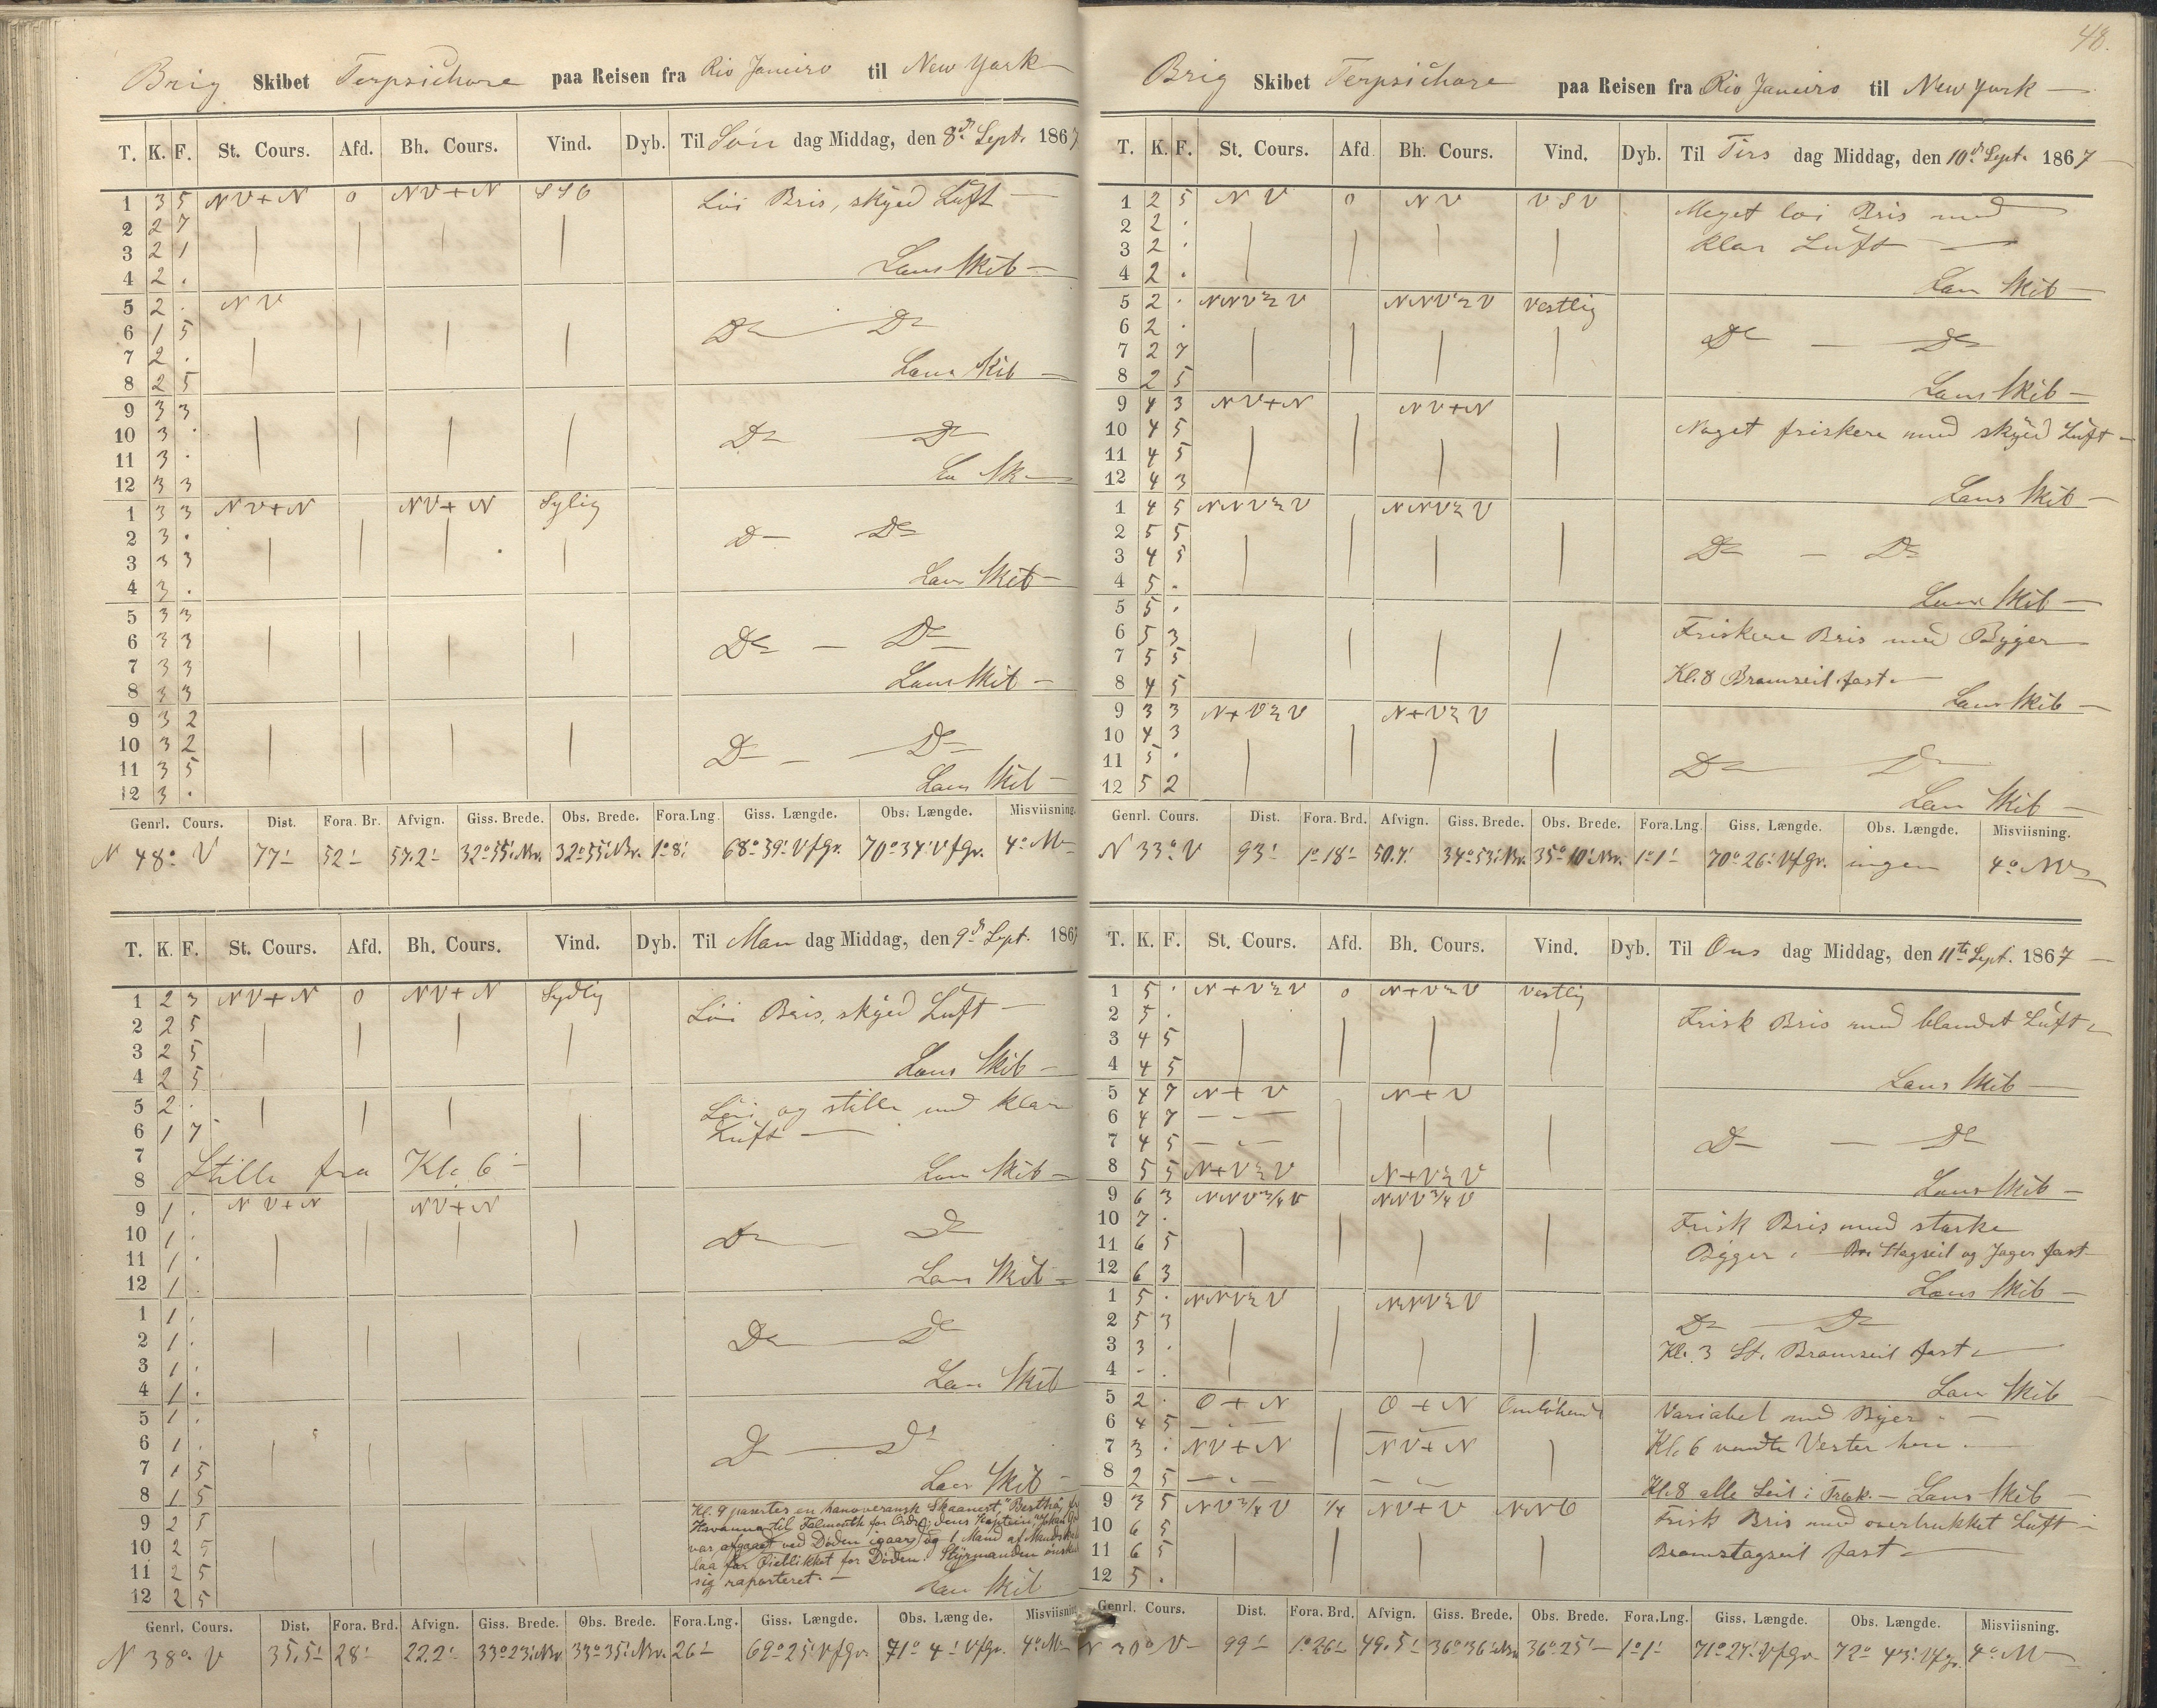 Brig Skibet Terpsichore paa Reisen fra Rio Janeiro til New York
T. K. F. St. Cours. Afd. Bh. Cours. Vind. Dyb. Til Søn dag Middag, den 8de Sept. 1867
1 3 5 NV+N 0 NV+N SSO Løi Bris, skyed Luft —
2 2 7
3 2 1
4 2 . Læns Skib —
5 2 . NV
6 1 5 Do — Do
7 2 .
8 2 5 Læns Skib —
9 3 3
10 3 . Do — Do
11 3 .
12 3 3 Læ Sk —
1 3 3 NV+N NV+N Sylig
2 3 . Do — Do
3 3 3
4 3 . Læns Skib —
5 3 3
6 3 3 Do — Do
7 3 3
8 3 3 Læns Skib —
9 3 2
10 3 2 Do — Do
11 3 5
12 3 . Læns Skib —
Genrl. Cours. Dist. Fora. Br. Afvign. Giss. Brede. Obs. Brede. Fora. Lng. Giss. Længde. Obs. Længde. Misviisning.
N 48° V 77' 52' 57.2' 32°55' Nr. 32°55' Nr. 1°8' 68°39' V f Gr. 70°34' V f Gr. 4° NV
T. K. F. St. Cours. Afd. Bh. Cours. Vind. Dyb. Til Man dag Middag, den 9de Sept. 1867
1 2 3 NV+N 0 NV+N Sydlig
2 2 5 Løi Bris, skyed Luft —
3 2 5
4 2 5 Læns Skib —
5 2 . Løi og stille med klar
6 1 7 Luft —
7
8 Stille fra Kl. 6 — Læns Skib —
9 1 . NV+N NV+N
10 1 . Do — Do
11 1 .
12 1 . Læns Skib —
1 1 .
2 1 . Do — Do
3 1 .
4 1 . Læns Skib
5 1 .
6 1 . Do — Do
7 1 5
8 1 5 Læns Skib —
Kl. 9 paserter en hanoveransk Skaanert, "Bertha," fr
9 2 5 Havanna til Falmouth for Ordre; dens Kaptein,
10 2 5 var afgaaet ved Døden igaar, og 1 Mand af Mandsk
11 2 5 laa for Øieblikket for Døden. Styrmanden ønsk
12 2 5 sig raporteret. — Læns Skib
Genrl. Cours. Dist. Fora. Brd. Afvign. Giss. Brede. Obs. Brede. Fora. Lng. Giss. Længde. Obs. Længde. Misviisning
N 38° V 35.5' 28' 22.2' 33°23' Nr. 33°35' Nr. 26' 69°25' V f Gr. 71°4' V f Gr. 4° NV
48.
Brig Skibet Terpsichore paa Reisen fra Rio Janeiro til New York —
T. K. F. St. Cours. Afd. Bh. Cours. Vind. Dyb. Til Tirs dag Middag, den 10de Sept. 1867 —
1 2 5 NV 0 NV VSV Meget løi Bris med
2 2 .
3 2 . klar Luft —
4 2 . Læns Skib —
5 2 . NNV½V NNV½V Vestlig
6 2 . Do — Do
7 2 7
8 2 5 Læns Skib —
9 4 3 NV+N NV+N
10 4 5 Noget friskere med skyed Luft —
11 4 5
12 4 3 Læns Skib —
1 4 5 NNV½V NNV½V
2 5 5
3 4 5 Do — Do
4 5 .
5 5 . Læns Skib —
6 5 3 Friskere Bris med Byger
7 5 5
8 4 5 Kl. 8 Bramseil fast. —
9 3 3 N+V½V N+V½V Læns Skib —
10 4 3
11 5 . Do — Do
12 5 2 Læns Skib —
Genrl. Cours. Dist. Fora. Brd. Afvign. Giss. Brede. Obs. Brede. Fora. Lng. Giss. Længde. Obs. Længde. Misviisning.
N 33° V 93' 1°18' 50.7' 34°53' Nr. 35°10' Nr. 1°1' 70°26' V f Gr. ingen 4° NV
T. K. F. St. Cours. Afd. Bh. Cours. Vind. Dyb. Til Ons dag Middag, den 11te Sept. 1867 —
1 5 . N+V½V 0 N+V½V Vestlig
2 5 . Frisk Bris med blandet Luft
3 4 5
4 4 5 Læns Skib —
5 4 7 N+V N+V
6 4 7 — " —
7 4 5 — " — Do — Do
8 5 5 N+V½V N+V½V
9 6 3 NNV¾V NNV¾V Læns Skib —
10 7 . Frisk Bris med stærke
11 6 5 Bygger. — Stagseil og Jager fast
12 6 3 Læns Skib —
1 5 . NNV½V NNV½V
2 5 3 Do — Do
3 3 . Kl. 3 St. Bramseil fast —
4 - . Læns Skib —
5 2 . O+N O+N Omløbende Variabel med Byer. —
6 4 5 — " —
7 3 . NV+N NV+N Kl. 6 vendte Vester hen. —
8 2 5 — " — — " — Kl. 8 alle Seil i Træk. — Læns Skib —
9 3 5 NV¾V ¼ NV+V NNO Frisk Bris med overtrukket Luft —
10 6 5
11 6 5 Bramstagseil fast —
12 5 .
Genrl. Cours. Dist. Fora. Brd. Afvign. Giss. Brede. Obs. Brede. Fora. Lng. Giss. Længde. Obs. Længde. Misviisning.
N 30° V 99' 1°26' 49.5' 36°36' Nr. 36°25' — 1°1' 71°27' V f Gr. 72°43' V f Gr. 4° NV